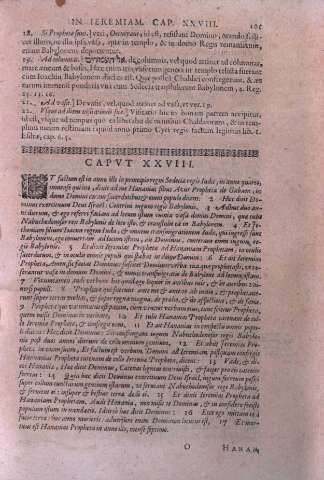 IN IEREMIAM. CAP. XXVIII. 105
18. Si Prophetæ sunt.] veri, Occurrant, id est, resistant Domino, orando scili-
cet illum, ne illa ipsa vasa, quæ in templo, & in domo Regis remanserunt,
etiam Babylonem deportentur.
19. Ad columnas. de columnis, vel quod attinet ad columnas,
mare æneum & bases. Hæc enim in templo relicta fuerunt
cum Ieconias Babylonem ductus est. Quæ postea Chaldæi confregerunt, &
eorum immensi ponderis æs cum Sedecia transtulerunt Babylonem, 4. Reg.
25. 13. 16.
21. Ad vasa.] De vasis, vel quod attinet ad vasa, ut ver. 19.
22. Visitabo.
id est, usque ad tempus quo ex libertate de manibus Chaldæorum, & in tem-
plum meum restitui; quod anno primo Cyri regis factum legimus lib. 1.
Esdræ, cap. 6. 5.
CAPVT XXVIII.
ET factum est in anno illo in principio regni Sedeciæ regis Iuda, in anno quarto,
in mense quinto, dixit ad me Hananias filius Azur Propheta de Gabaon, in
domo Domini coram sacerdotibus & omni populo dicens: 2 Hæc dicit Do-
minus exercituum Deus Israel: Contrivi jugum regis Babylonis. 3 Adhuc duo an-
ni dierum, & ego referri faciam ad locum istum omnia vasa domus Domini, quæ tulit
Nabuchodonosor rex Babylonis de loco isto, & transtulit ea in Babylonem. 4 Et Ie-
choniam filium Ioacim regem Iuda, & omnem transmigrationem Iuda, qui ingressi sunt
Babylonem, ego convertam ad locum istum, ait Dominus, conteram enim jugum re-
gis Babylonis. 5 Et dixit Ieremias Propheta ad Hananiam Prophetam, in oculis
sacerdotum, & in oculis omnis populi qui stabat in domo Domini. 6 Et ait Ieremias
Propheta, Amen, sic faciat Dominus: suscitet Dominus verba tua quæ prophetasti, ut re-
ferantur vasa in domum Domini, & omnis transmigratio de Babylone ad locum istum.
7 Veruntamen audi verbum hoc quod ego loquor in auribus tuis, & in auribus uni-
versi populi. 8 Prophetæ qui fuerunt ante me & ante te ab initio, & prophetave-
runt super terras multas, & super regna magna, de prælio, & de afflictione, & de fame.
9 Propheta qui vaticinatus est pacem, cum venerit verbum ejus, scietur Propheta,
quem misit Dominus in veritate. 10 Et tulit Hananias Propheta catenam de col-
lo Ieremiæ Prophetæ, & confregit eam. 11 Et ait Hananias in conspectu omnis popu-
li dicens: Hæc dicit Dominus: Sic confringam jugum Nabuchodonosor regis Babylo-
nis post duos annos dierum de collo omnium gentium. 12 Et abiit Ieremias Pro-
pheta in viam suam. Et factum est verbum Domini ad Ieremiam, postquam confregit
Hananias Propheta catenam de collo Ieremiæ Prophetæ, dicens: 13 Vade, & di-
ces Hananiæ, Hæc dicit Dominus, Catenas ligneas contrivisti, & facies pro eis catenas
ferreas: 14 Quia hæc dicit Dominus exercituum Deus Israel, jugum ferreum posui
super collum cunctarum gentium istarum, ut serviant Nabuchodonosor regi Babylonis,
& servient ei: insuper & bestias terræ dedi ei. 15 Et dixit Ieremias Propheta ad
Hananiam Prophetam, Audi Hanania, non misit te Dominus, & tu confidere fecisti
populum istum in mendacio. Idcirco hæc dicit Dominus: 16 Ecce ego mittam te à
facie terræ: hoc anno morieris: adversum enim Dominum locutus es. 17 Et mor-
tuus est Hananias Propheta in anno illo, mense septimo.
O HANAN